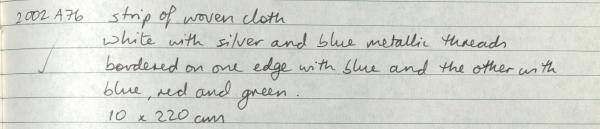 2002 A76 strip of woven cloth
white with silver and blue metallic threads
bordered on one edge with blue and the other with
blue, red and green.
10 x 220 cm